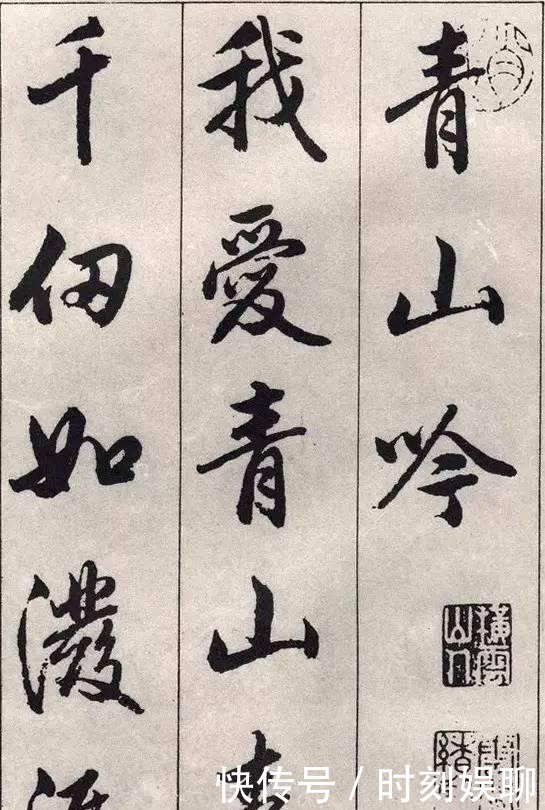 青山吟
我愛青山
千仞如潑
橫雲山人
快传号 / 时刻娱聊